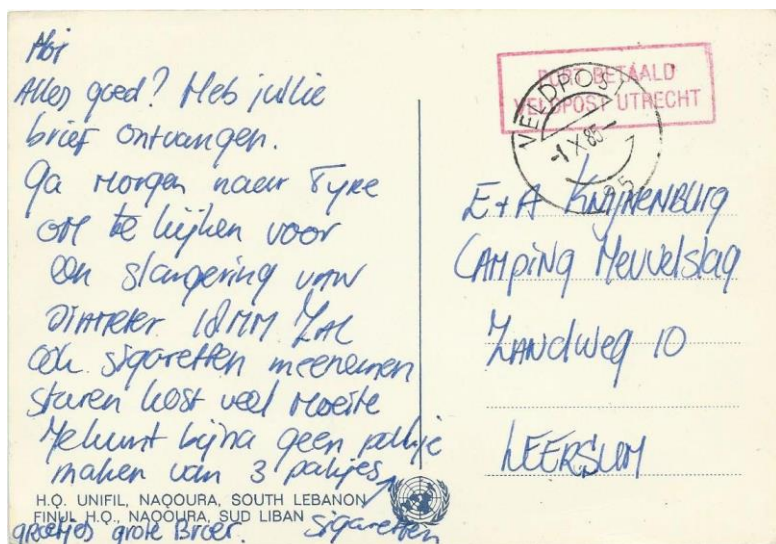 Hoi
Alles goed? Heb jullie
brief ontvangen.
Ga morgen naar Tyre
om te kijken voor
een slangering vnw
Diameter 18MM Zal
ook sigaretten meenemen
sturen kost veel moeite
Je kunt bijna geen pakje
maken van 3 pakjes
sigaretten
groetjes grote Broer.
H.Q. UNIFIL, NAQOURA, SOUTH LEBANON
FINUL H.Q., NAQOURA, SUD LIBAN
PORT BETAALD
VELDPOST UTRECHT
VELDPOST
-1 X 85-
E+A KNIJNENBURG
CAMPING Heuvelslag
ZANDweg 10
LEERSUM